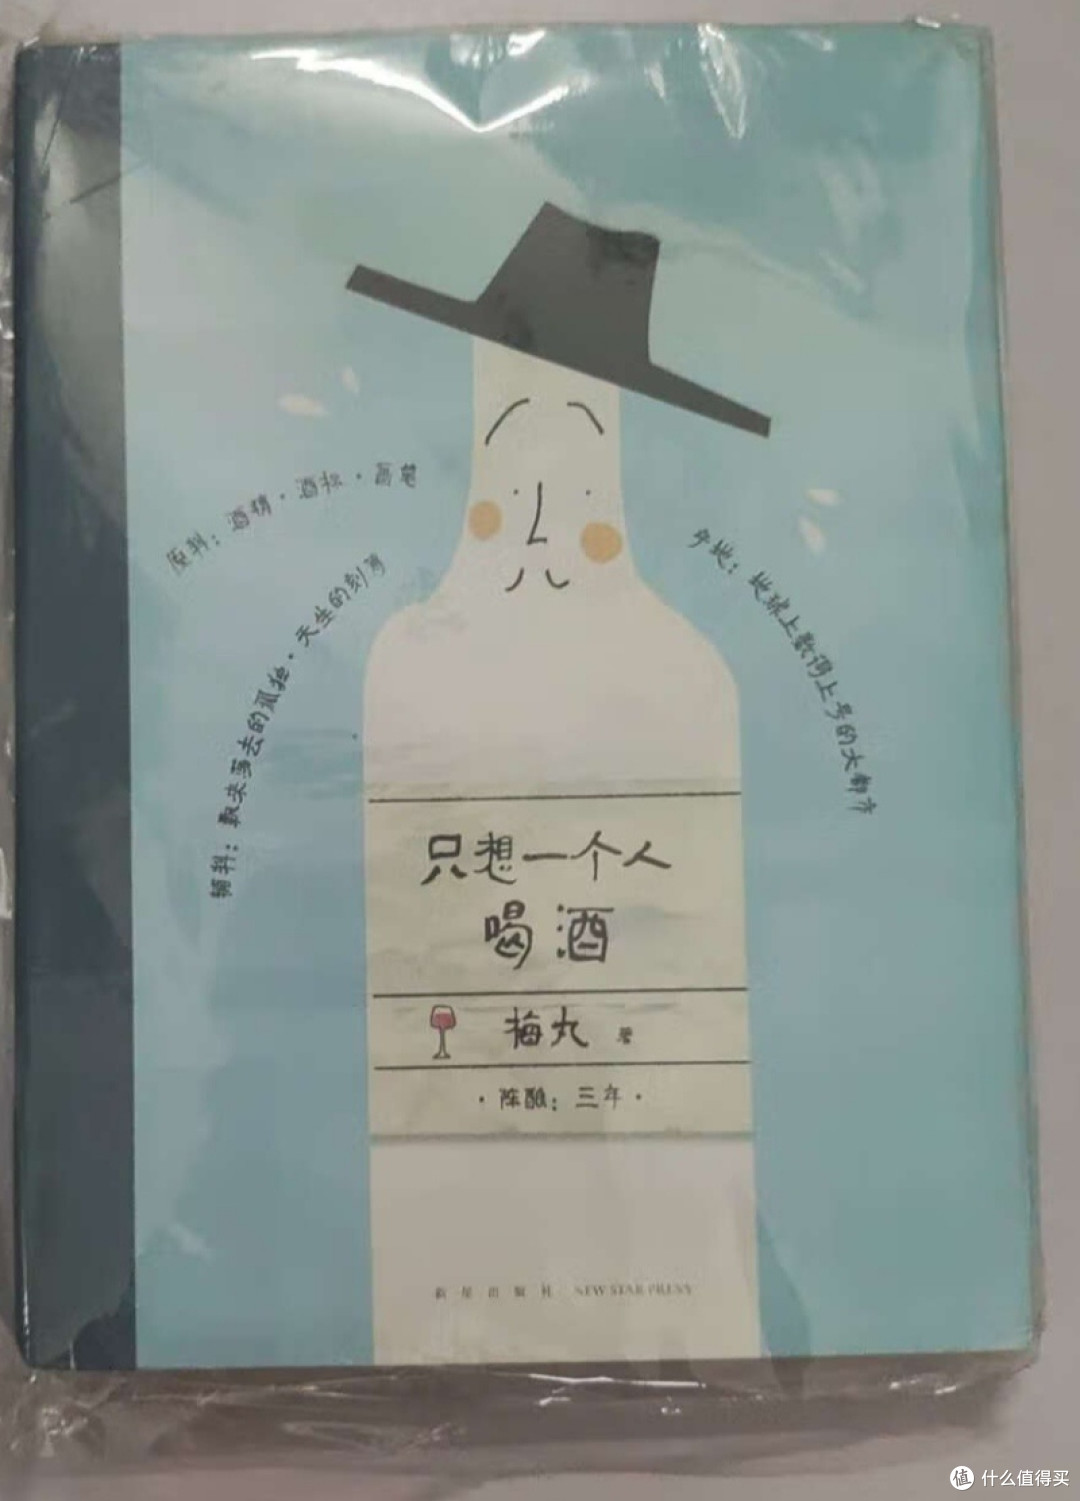 原料：酒精·酒标·画笔
辅料：飘来荡去的孤独·天生的刻薄
产地：地球上数得上号的大都市
只想一个人
喝酒
梅丸 著
·陈酿：三年·
新星出版社 NEW STAR PRESS
值 什么值得买